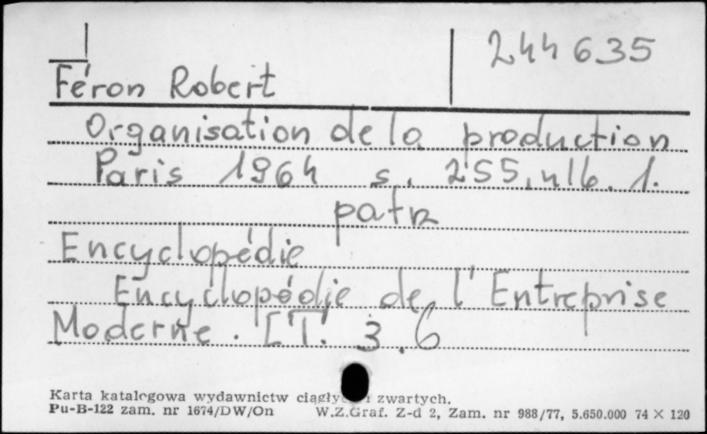 244635
Féron Robert
Organisation de la production
Paris 1964 s. 255, nlb. 1.
patrz
Encyclopédie
Encyclopédie de l'Entreprise
Moderne. [T. 3.6
Karta katalogowa wydawnictw i zwartych.
Pu-B-122 zam. nr 1674/DW/On W.Z.Graf. Z-d 2, Zam. nr 988/77, 5.650.000 74 × 120